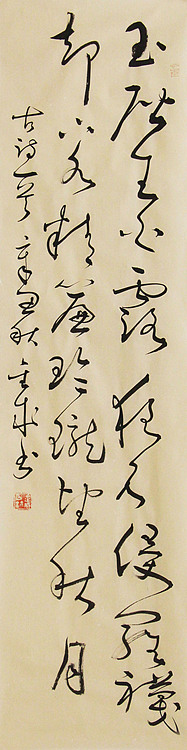 玉階生白露夜久侵羅襪
却下水精簾玲瓏望秋月
古詩一首 秋 书